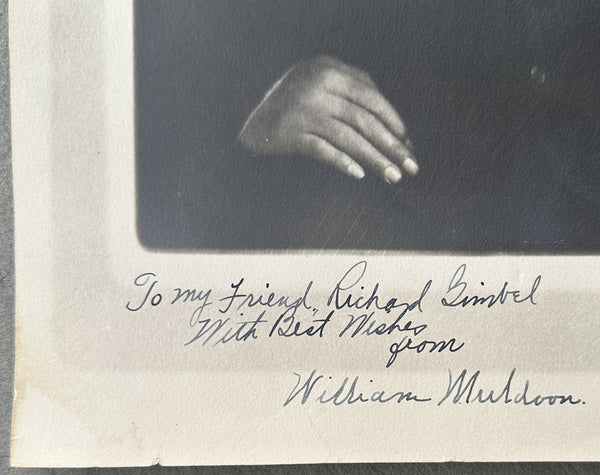 To my Friend, Richard Gimbel
With Best Wishes
from
William Muldoon.